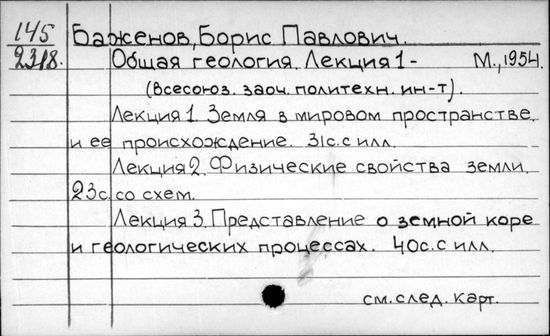 145 Баженов, Борис Павлович.
2318. Общая геология. Лекция 1 - М., 1954.
(Всесоюз. заоч. политехн. ин-т).
Лекция 1. Земля в мировом пространстве
и ее происхождение. 31с. с илл.
Лекция 2. Физические свойства земли.
23с. со схем.
Лекция 3. Представление о земной коре
и геологических процессах. 40с. с илл.
см. след. карт.